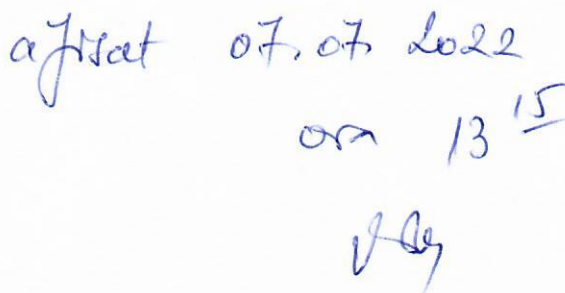 afisat 07.07.2022
ora 13 15